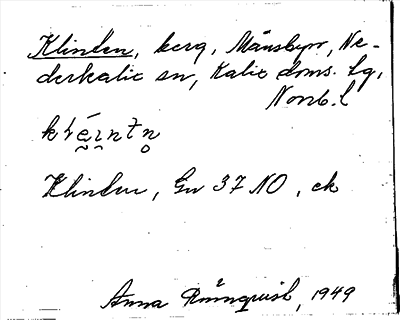 Klinten, berg, Månsbyn, Ne-
derkalix sn, Kalix doms. lg,
Norrb. l
Klinten, Gn 37 NO, ek
Anna Rönnqvist, 1949